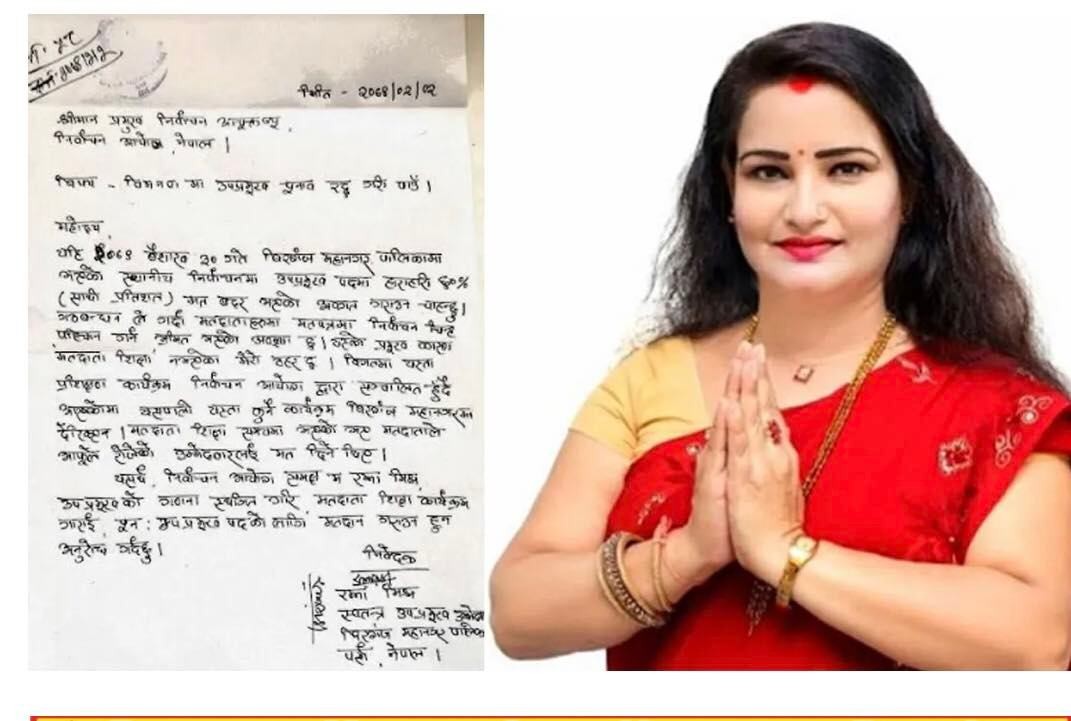 मिति - २०७९/०२/०२
श्रीमान प्रमुख निर्वाचन आयुक्तज्यू,
निर्वाचन आयोग, नेपाल ।
विषय - विरगंज मा उपप्रमुख चुनाव रद्द गरि पाउँ ।
महोदय,
यहि २०७९ वैशाख ३० गते विरगंज महानगर पालिकामा
भएको स्थानीय निर्वाचनमा उपप्रमुख पदमा हाराहारी ६०%
(साठी प्रतिशत) मत बदर भएको अवगत गराउन चाहन्छु ।
गठबन्धन ले गर्दा मतदाताहरुमा मतपत्रमा निर्वाचन चिन्ह
पहिचान गर्न भ्रमित भएको अवस्था छ । यसको प्रमुख कारण
मतदाता शिक्षा नभएको मेरो ठहर छ । विगतमा यस्ता
प्रशिक्षण कार्यक्रम निर्वाचन आयोग द्वारा सञ्चालित हुँदै
आएकोमा यसपाली यस्ता कुनै कार्यक्रम विरगंज महानगरमा
देखिएन । मतदाता शिक्षा सम्पन्न भएको भए मतदाताले
आफुले रोजेको उम्मेदवारलाई मत दिने थिए ।
यसर्थ, निर्वाचन आयोग समक्ष म रक्षा मिश्र,
उपप्रमुखको गणना स्थगित गरि, मतदाता शिक्षा कार्यक्रम
गराई, पून: उपप्रमुख पदको लागि मतदान गराउन हुन
अनुरोध गर्दछु ।
निवेदक
मिश्र
स्वतन्त्र उपप्रमुख
विरगंज महानगर
पर्सा, नेपाल ।